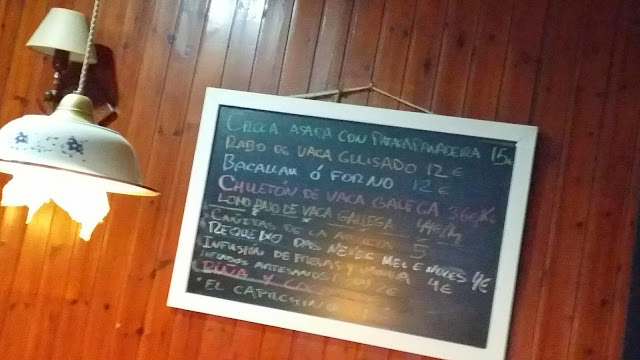 CROCA ASADA CON PATATA PANADEIRA 15
RABO DE VACA GUISADO 12 €
BACALLAU Ó FORNO 12 €
CHULETÓN DE VACA GALEGA 36€/K
LOMO BAJO DE VACA GALLEGA 44€/
CAÑITAS DE LA 5
REQUEIXO DAS NEVES MEL E NOCES 4€
INFUSIÓN DE 4€
HELADOS ARTESANOS
PIÑA Y
EL CAPUCHINO